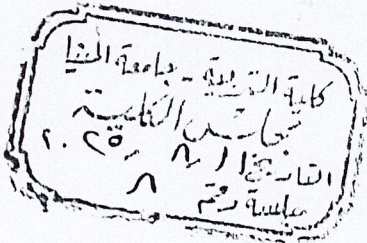 كلية التربية - جامعة المنيا
مجلس الكلية
التاريخ ١١ / ٨ / ٢٠٢٥
جلسة رقم ٨